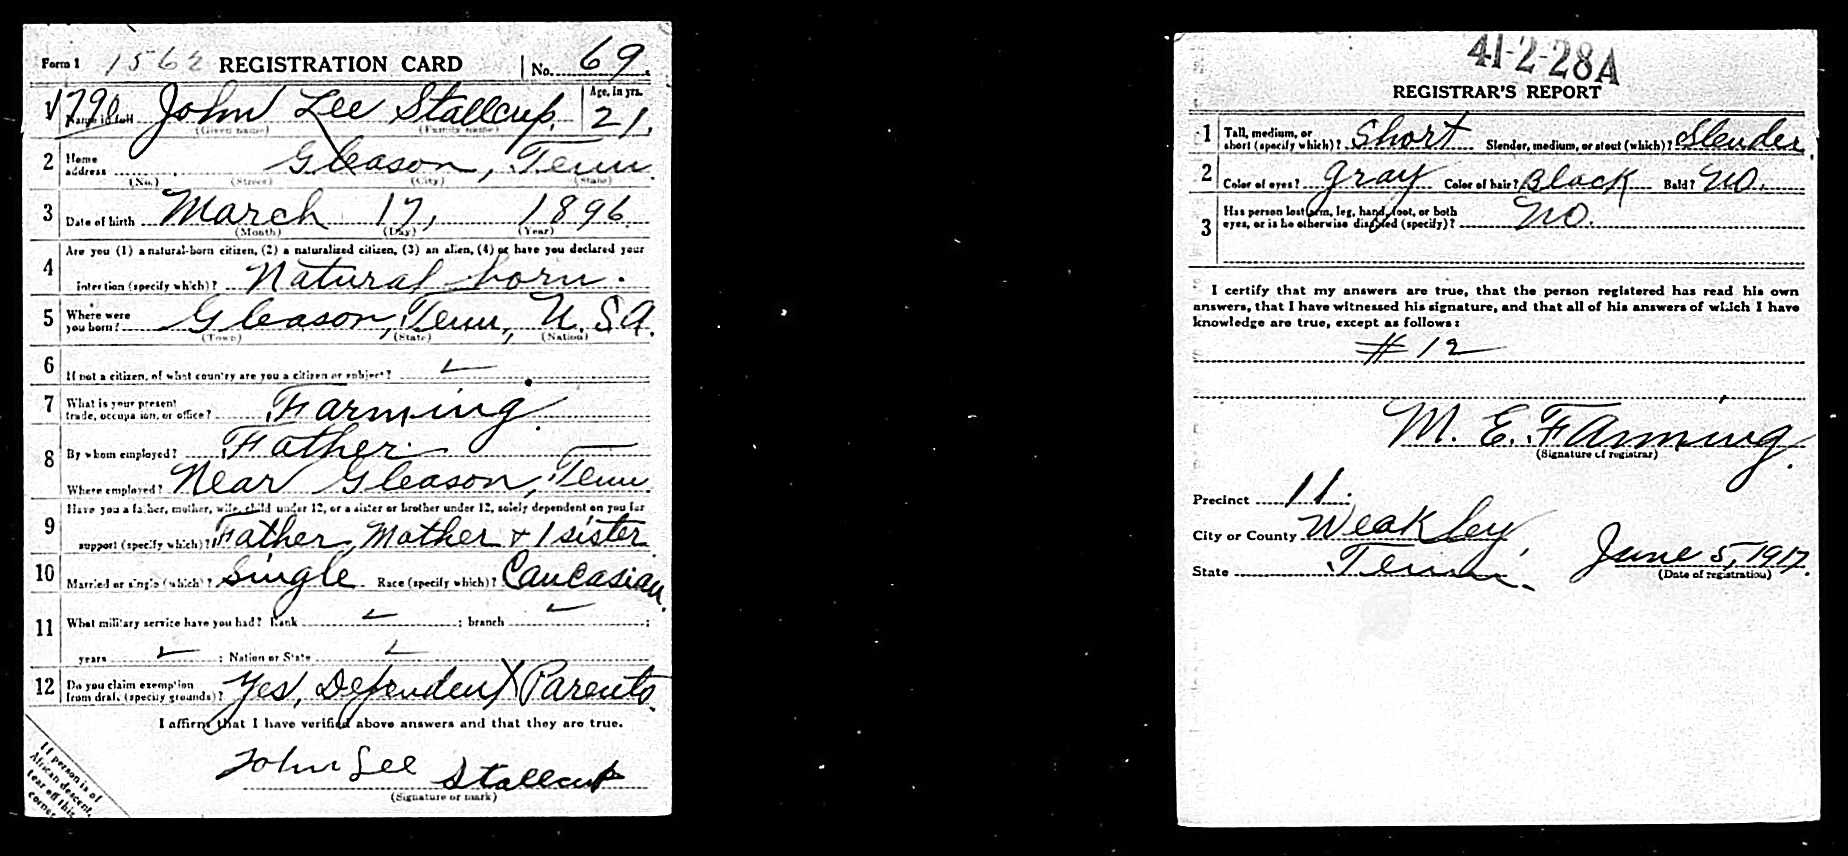 Form 1 1562 REGISTRATION CARD No. 69
1 790 Name in full John Lee Stallcup. Age, in yrs. 21.
(Given name) (Family name)
2 Home address Gleason, Tenn.
(No.) (Street) (City) (State)
3 Date of birth March 17, 1896
(Month) (Day) (Year)
4 Are you (1) a natural-born citizen, (2) a naturalized citizen, (3) an alien, (4) or have you declared your
intention (specify which)? Natural born.
5 Where were you born? Gleason, Tenn, U.S.A.
(Town) (State) (Nation)
6 If not a citizen, of what country are you a citizen or subject?
7 What is your present trade, occupation, or office? Farming.
8 By whom employed? Father.
Where employed? Near Gleason, Tenn.
9 Have you a father, mother, wife, child under 12, or a sister or brother under 12, solely dependent on you for
support (specify which)? Father, Mother + 1 sister
10 Married or single (which)? Single Race (specify which)? Caucasian.
11 What military service have you had? Rank ; branch ;
years ; Nation or State
12 Do you claim exemption from draft (specify grounds)? Yes, Dependent Parents.
I affirm that I have verified above answers and that they are true.
John Lee Stallcup
(Signature or mark)
If person is of
African descent,
tear off this
corner
41-2-28A
REGISTRAR'S REPORT
1 Tall, medium, or short (specify which)? Short Slender, medium, or stout (which)? Slender
2 Color of eyes? Gray Color of hair? Black Bald? No.
3 Has person lost arm, leg, hand, foot, or both
eyes, or is he otherwise disabled (specify)? No.
I certify that my answers are true, that the person registered has read his own
answers, that I have witnessed his signature, and that all of his answers of which I have
knowledge are true, except as follows:
# 12
M. E. Fanning.
(Signature of registrar)
Precinct 11.
City or County Weakley,
State Tenn. June 5, 1917.
(Date of registration)